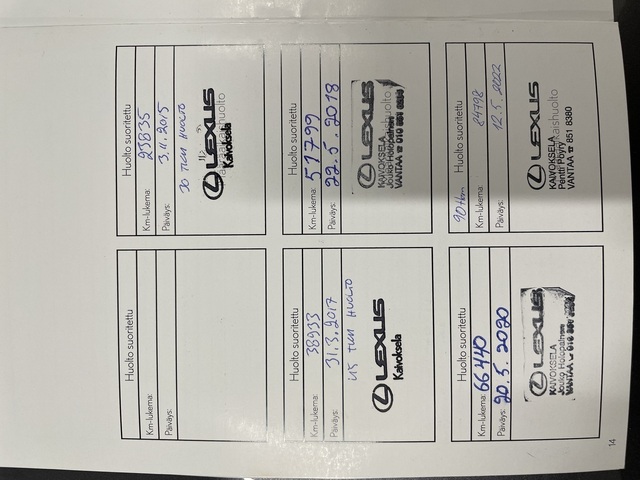 Huolto suoritettu
Km-lukema:
Päiväys:
Huolto suoritettu
Km-lukema: 23835
Päiväys: 3.11.2015
30 TKM HUOLTO
LEXUS
Kaivoksela
Huolto suoritettu
Km-lukema: 38933
Päiväys: 31.3.2017
45 TKM HUOLTO
LEXUS
Kaivoksela
Huolto suoritettu
Km-lukema: 51799
Päiväys: 22.5.2018
LEXUS
KAIVOKSELA
Jouko
VANTAA ☎
Huolto suoritettu
Km-lukema: 66440
Päiväys: 20.5.2020
LEXUS
KAIVOKSELA
Jouko
VANTAA ☎
90tkm Huolto suoritettu
Km-lukema: 84798
Päiväys: 12.5.2022
LEXUS
KAIVOKSELA
Pentti Pöyry
VANTAA ☎ 851 8380
14